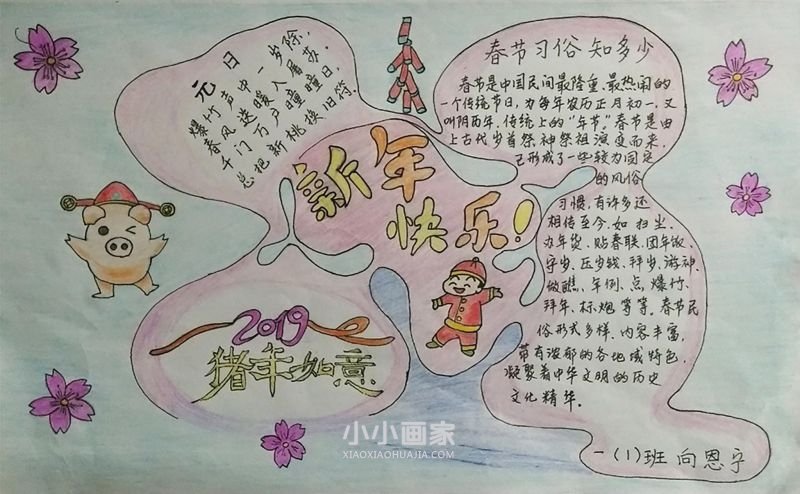 元日
爆竹声中一岁除,
春风送暖入屠苏.
千门万户曈曈日,
总把新桃换旧符.
新年
快乐!
2019
猪年如意
春节习俗知多少
春节是中国民间最隆重、最热闹的
一个传统节日,为每年农历正月初一,又
叫阴历年,传统上的“年节”.春节是由
上古代岁首祭神祭祖演变而来,
已形成了一些较为固定
的风俗
习惯,有许多还
相传至今.如扫尘、
办年货、贴春联、团年饭、
守岁、压岁钱、拜岁、游神、
做醮、年例、点爆竹、
拜年、标炮等等.春节民
俗形式多样、内容丰富,
带有浓郁的各地域特色,
凝聚着中华文明的历史
文化精华.
一(1)班 向恩宇
小小画家
XIAOXIAOHUAJIA.COM